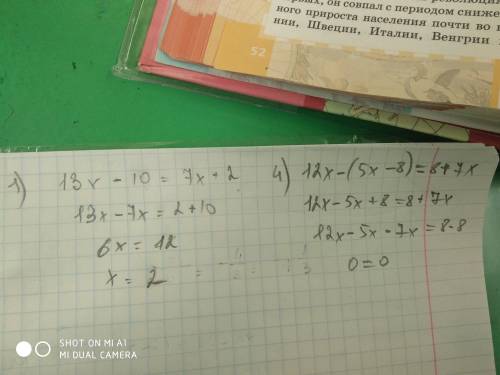 первых, он совпал с периодом сниже
ного прироста населения почти во
нии, Швеции, Италии, Венгрии
52
1) 13x - 10 = 7x + 2
13x - 7x = 2 + 10
6x = 12
x = 2
4) 12x - (5x - 8) = 8 + 7x
12x - 5x + 8 = 8 + 7x
12x - 5x - 7x = 8 - 8
0 = 0
SHOT ON MI A1
MI DUAL CAMERA